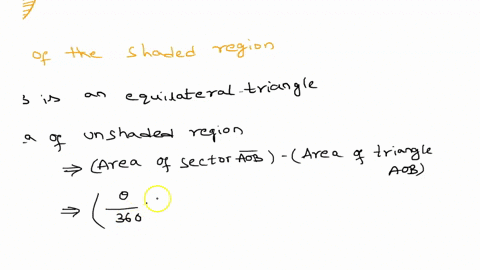 of the shaded region
is an equilateral triangle
of unshaded region
⇒ (Area of sector AOB) - (Area of triangle
AOB)
⇒ ( θ/360 .